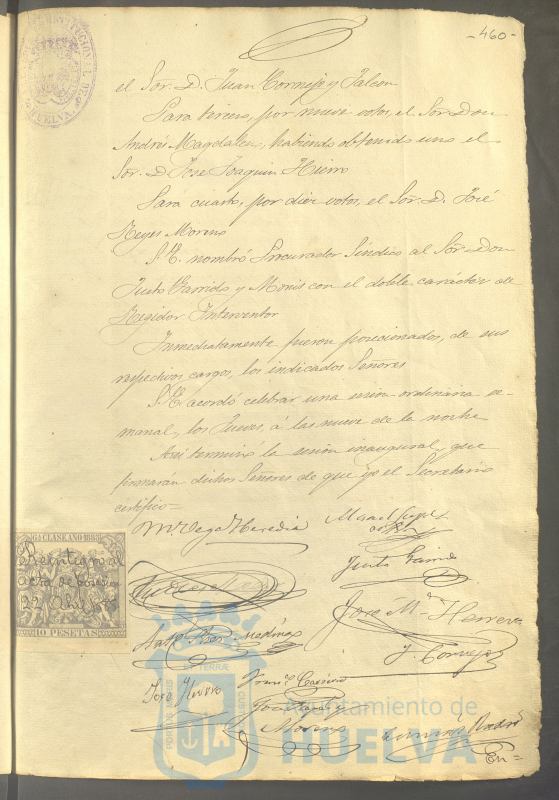 -460-
el Sor. D. Juan Cornejo y Falcon
Para tercero, por nueve votos, el Sor. Don
Andrés Magdalena, habiendo obtenido uno el
Sor. D. Jose Joaquin Hierro
Para cuarto, por diez votos, el Sor. D. José
Reyes Moreno
S. E. nombró Procurador Síndico al Sor. Don
Justo Garrido y Monis con el doble carácter de
Regidor Interventor
Inmediatamente fueron posecionados, de sus
respectivos cargos, los indicados Señores
S. E. acordó celebrar una sesion ordinaria se-
manal, los Jueves, á las nueve de la noche
Asi terminó la sesion inaugural, que
firmarán dichos Señores de que yo el Secretario
certifico =
M. Vega Heredia
Justo Garrido
José Ma. Herrera
Medina
J. Cornejo
José Hierro
José Reyes y
Moreno
En =
HUELVA
CLASE AÑO 188
Reintegro al
acta de posesion
10 PESETAS
PORTUS MARIS ET TERRÆ CUSTODIA
Ayuntamiento de
HUELVA